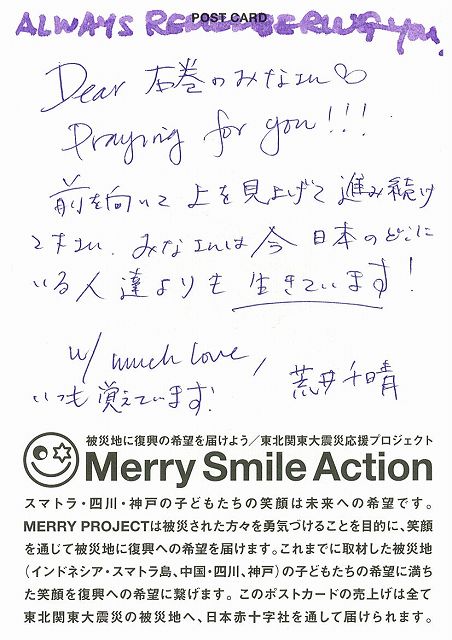 POST CARD
ALWAYS REMEMBERING you.
Dear 石巻のみなさん♡
Praying for you!!!
前を向いて 上を見上げて 進み続け
て下さい. みなさんは今 日本のどこに
いる人達よりも 生きています!
w/ much love,
いつも覚えています! 荒井千晴
被災地に復興の希望を届けよう/東北関東大震災応援プロジェクト
Merry Smile Action
スマトラ・四川・神戸の子どもたちの笑顔は未来への希望です。
MERRY PROJECTは被災された方々を勇気づけることを目的に、笑顔
を通じて被災地に復興への希望を届けます。これまでに取材した被災地
(インドネシア・スマトラ島、中国・四川、神戸)の子どもたちの希望に満ち
た笑顔を復興への希望に繋げます。このポストカードの売上げは全て
東北関東大震災の被災地へ、日本赤十字社を通して届けられます。